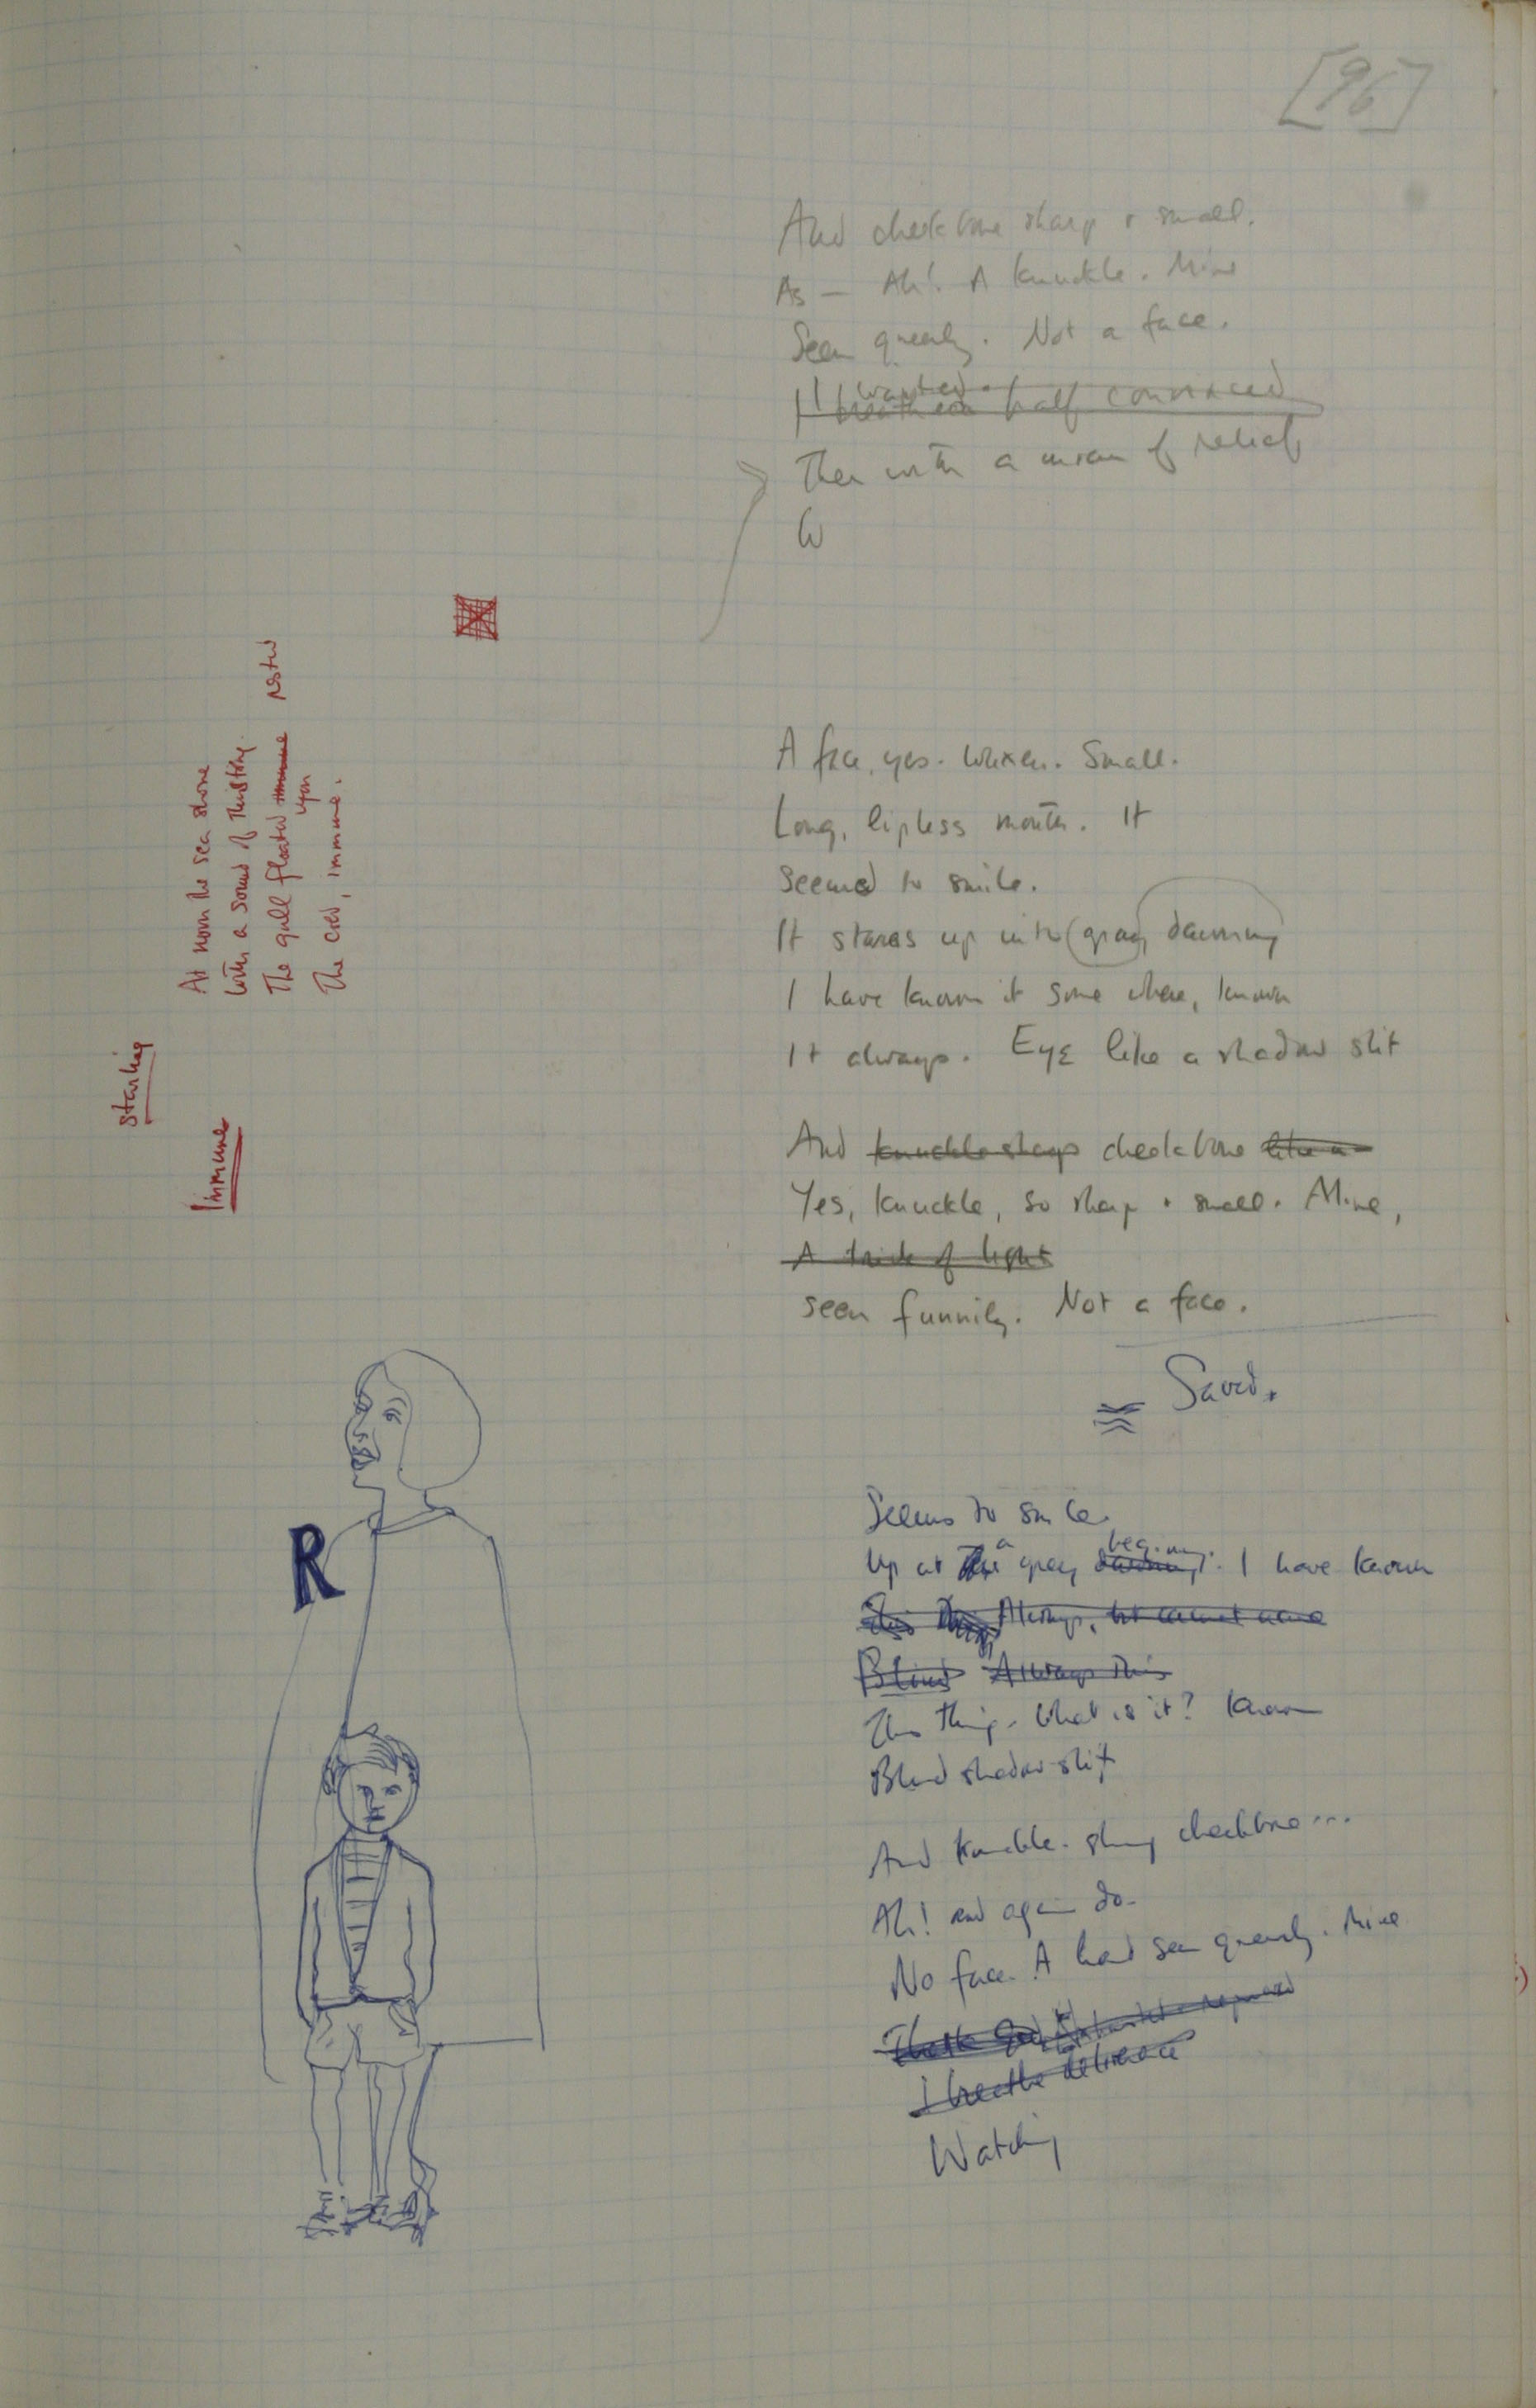 [96]
And cheekbone sharp + small.
As — Ah! A knuckle. Mine
Seen queerly. Not a face.
I wanted half convinced
Then with a moan of relief
W
A face, yes. Waxen. Small.
Long, lipless mouth. It
Seemed to smile.
It stares up into (gray, dawning
I have known it some where, known
It always. Eye like a shadow slit
And knuckle sharp cheekbone like a
Yes, knuckle, so sharp + small. Mine,
A trick of light
seen funnily. Not a face.
Saved.
Seems to smile.
beginning.
Up at the a gray dawning. I have known
This Always, but cannot name
Blind Always this
This thing. What is it? Known
Blind shadow-slit
And knuckle-sharp cheekbone...
Ah! and again do.
No face. A hand seen queerly. Mine
Thank God
I breathe deliverance
Watching
At noon the sea shone
With a sound of thistling.
The gull floated immune rested
upon
The cold, immune.
starling
Immune
R